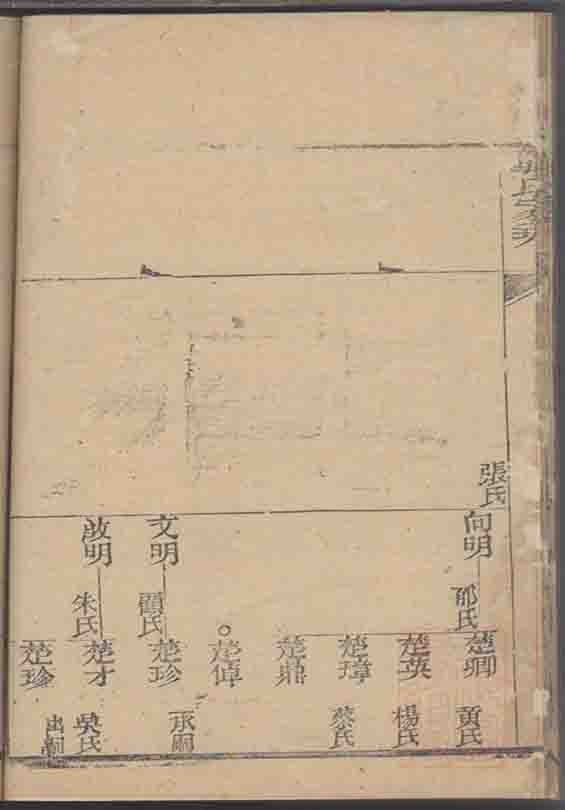 張氏
向明
邵氏
楚卿
黃氏
楚英
楊氏
楚璋
蔡氏
楚鼎
楚倬
文明
顧氏
楚珍
承嗣
啟明
朱氏
楚才
吳氏
楚珍
出嗣